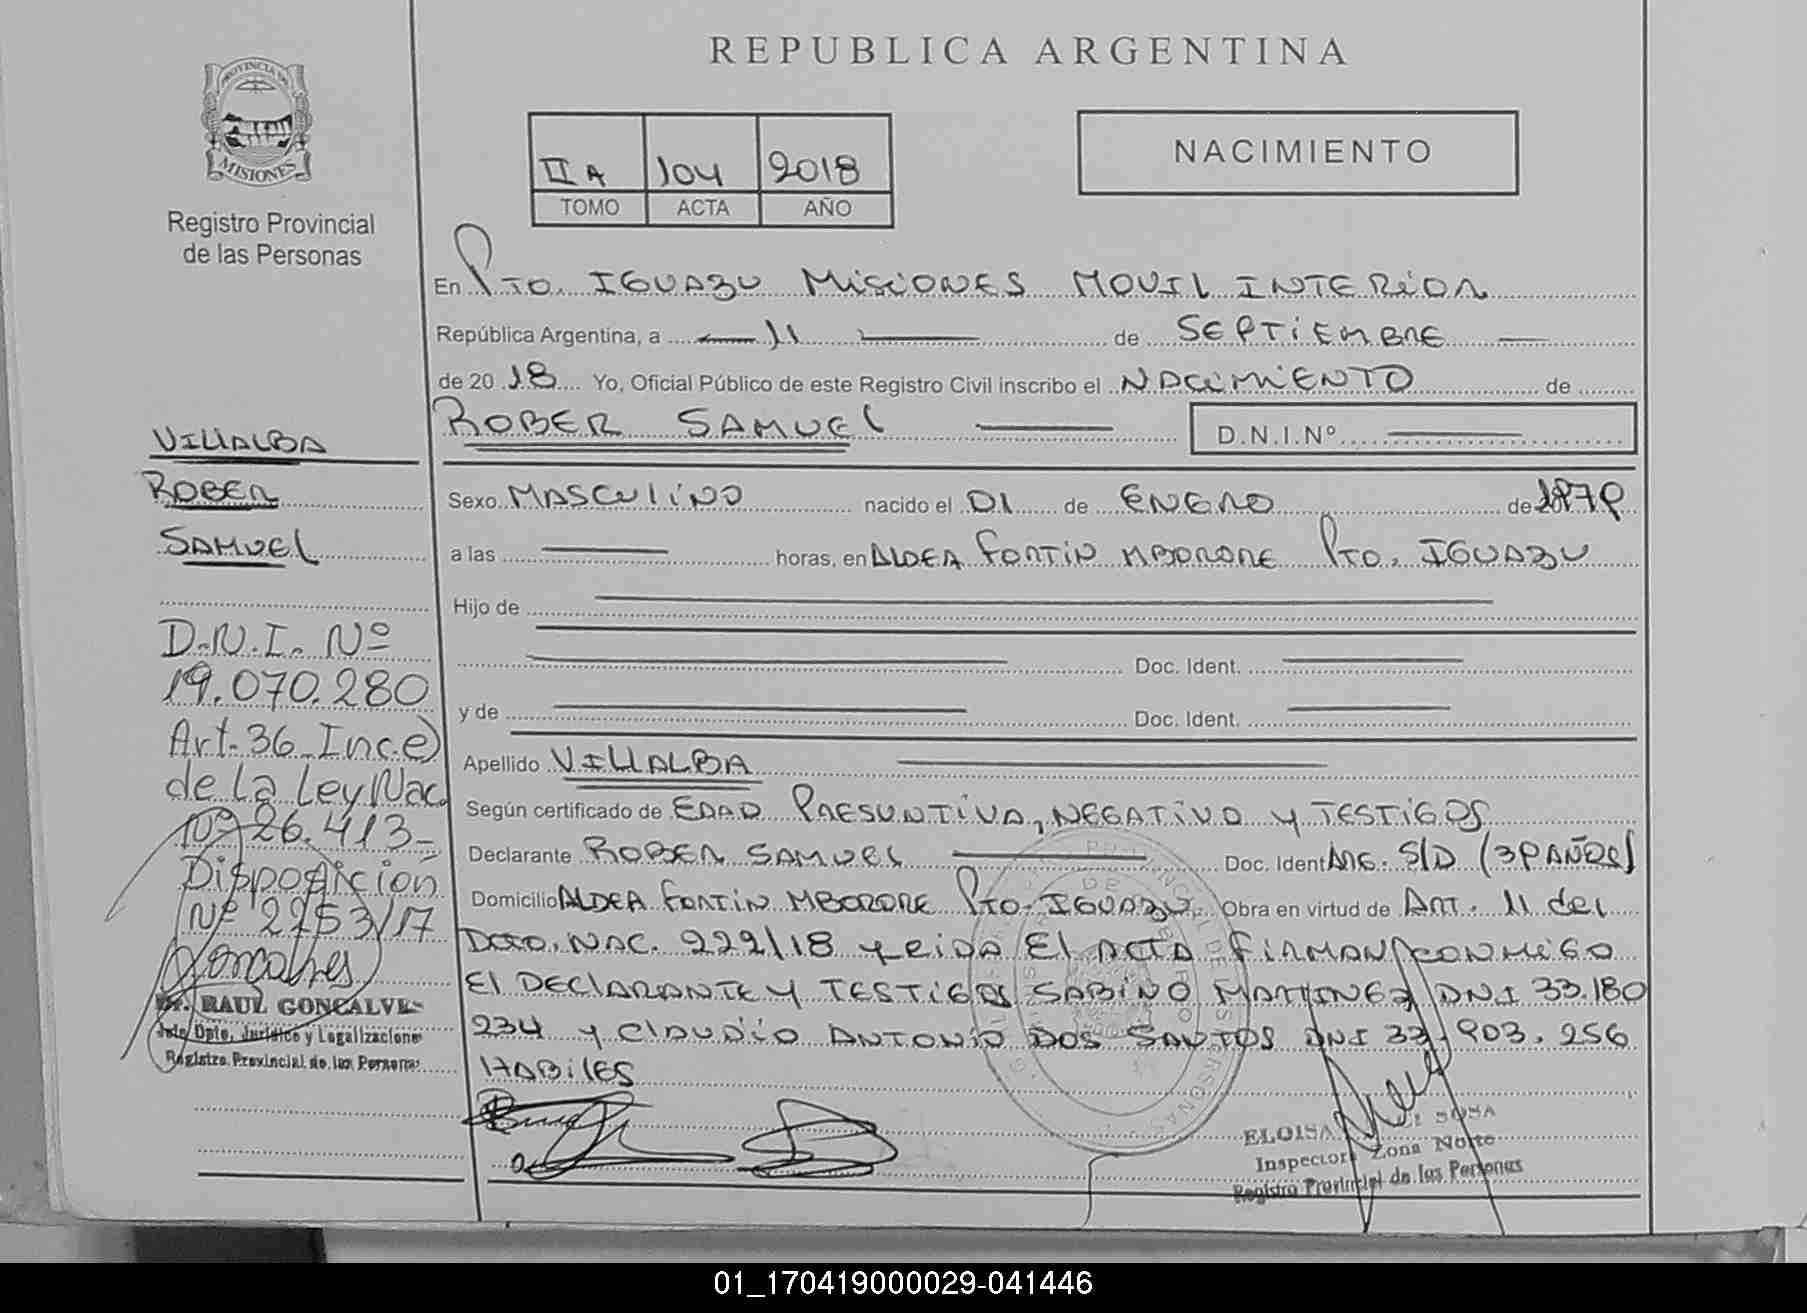 REPUBLICA ARGENTINA
PROVINCIA DE
MISIONES
Registro Provincial
de las Personas
II A 104 2018
TOMO ACTA AÑO
NACIMIENTO
En Pto. IGUAZU MISIONES MOVIL INTERIOR
República Argentina, a 11 de SEPTIEMBRE
de 2018 Yo, Oficial Público de este Registro Civil inscribo el NACIMIENTO de
ROBER SAMUEL D.N.I.Nº
Sexo MASCULINO nacido el 01 de ENERO de
a las horas, en ALDEA FORTIN MBORORE Pto. IGUAZU
Hijo de
Doc. Ident.
y de Doc. Ident.
Apellido VILLALBA
Según certificado de EDAD PRESUNTIVA, NEGATIVO Y TESTIGOS
Declarante ROBER SAMUEL Doc. Ident ARG. S/D
Domicilio ALDEA FORTIN MBORORE Pto. IGUAZU. Obra en virtud de ART. 11 del
Dcto. NAC. 222/18 y leida El ACTA FIRMAN CONMIGO
El DECLARANTE Y TESTIGOS SABINO MARTINEZ DNI 33.180
234 y CLAUDIO ANTONIO DOS SANTOS DNI 33.903.256
HABILES
VILLALBA
ROBER
SAMUEL
D.N.I. Nº
19.070.280
Art. 36 Inc. e)
de La Ley Nac.
Nº 26.413-
Disposicion
Nº 2253/17
Goncalves
Dr. RAUL GONCALVES
Jefe Dpto. Jurídico y Legalizaciones
Registro Provincial de las Personas
ELOISA SOSA
Inspectora Zona Norte
Registro Provincial de las Personas
01_170419000029-041446